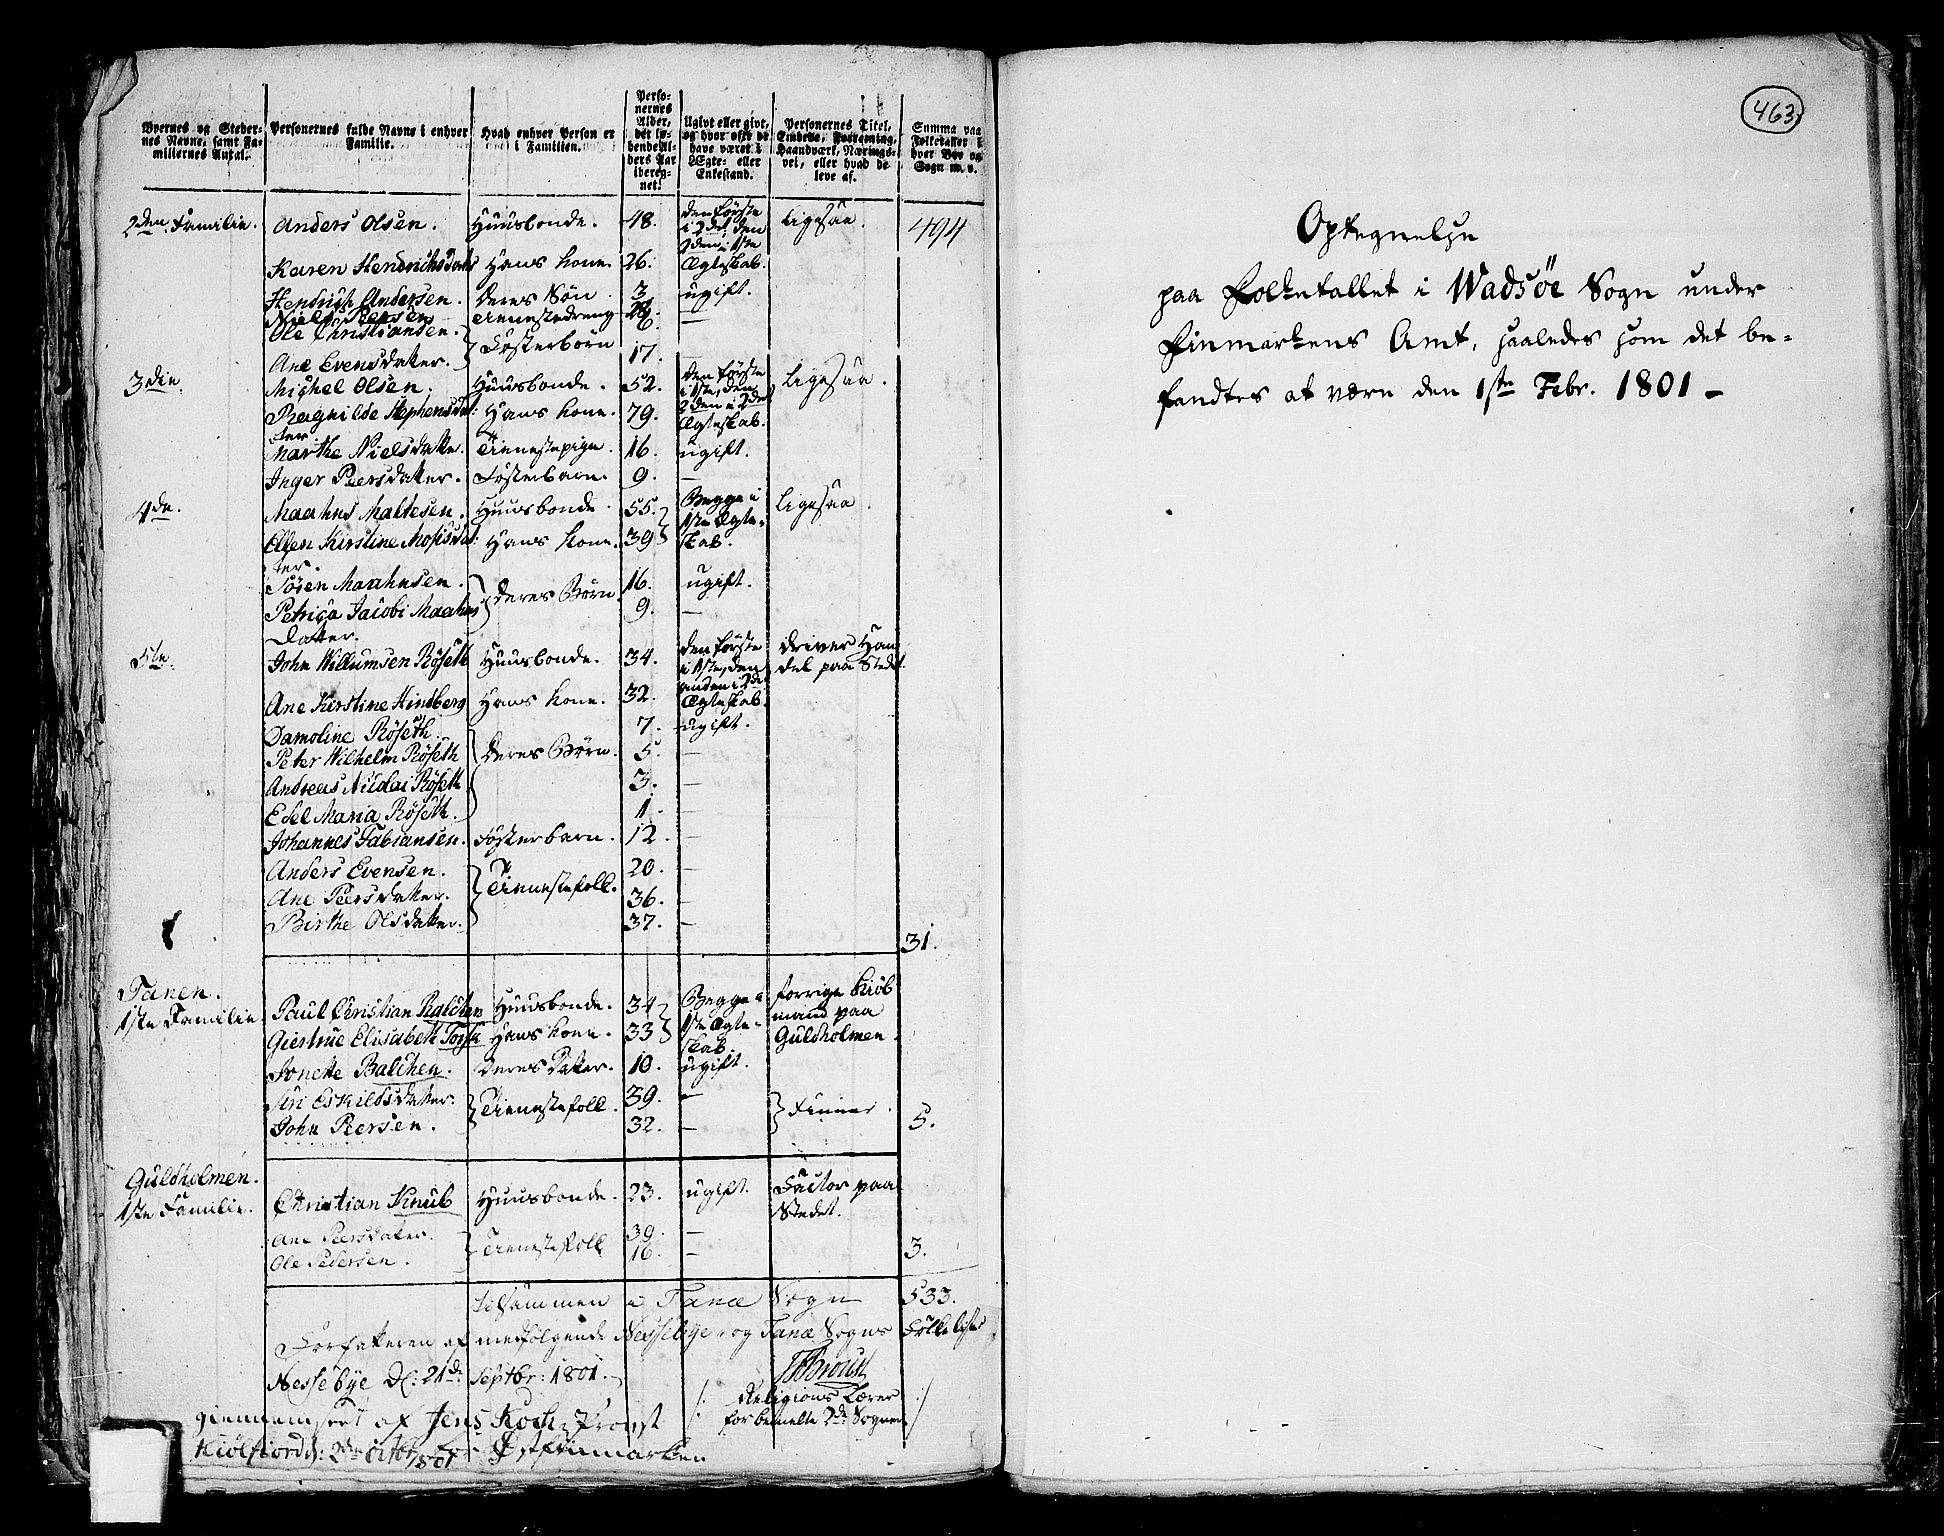 Byernes og Steder-
nes Navne, samt Fa-
miliernes Antal.
Personernes fulde Navne i enhver
Familie.
Hvad enhver Person er
i Familien.
Perso-
nernes
Alder,
det lø-
bende Al-
ders Aar
ibereg-
net.
Ugivt eller givt,
og hvor ofte de
have været i
Ægte- eller
Enkestand.
Personernes Titel,
Embede, Forretning,
Haandværk, Nærings-
vei, eller hvad de
leve af.
Summa paa
Folketallet i
hver Bye og
Sogn m. v.
2den Familie. Anders Olsen. Huusbonde. 48. den første i 2det, den 2den i 1ste Ægteskab. Ligesaa. 494
Karen Hendrichsdatter Hans Kone. 26.
Hendrich Andersen. deres Søn. 3 ugift.
Niels Tienestedreng —
Ole Christiansen. } Fosterbörn
Ane Evensdatter. 17. —
3die. Michel Olsen. Huusbonde. 52. den første i 1ste, den 2den i 2det Ægteskab. Ligesaa.
Ragnilde Stephensdat: Hans Kone. 79.
ter
Marthe Nielsdatter. Tienestepige. 16. ugift.
Inger Peersdatter. Fosterbarn. 9. —
4de. Maahns Maltesen. Huusbonde. 55. Begge i 1ste Ægte-skab. Ligesaa.
Ellen Kirstine Mosisdat: Hans Kone. 39
ter.
Søren Maahnsen. } deres Børn. 16. ugift.
Petrica Jacobi Maahns 9. —
Datter.
5te. John Willumsen Röseth Huusbonde. 34. den første i 1ste, den anden i 2det Ægteskab. driver Han del paa Stedet.
Ane Kirstine Hindberg Hans Kone. 32.
Damoline Röseth. } deres Börn. 7. ugift.
Peter Wilhelm Röseth 5. —
Andreas Nicolai Röseth 3. —
Edel Maria Röseth. 1 —
Johannes Fabiansen. Fosterbarn. 12 —
Anders Evensen. } Tienestefolk. 20. —
Ane Peersdatter. 36. —
Birthe Olsdatter. 37. —
31.
Tanen.
1ste Familie Paul Christian Balchen Huusbonde. 34 Begge i 1ste Ægte-skab. forrige Kiöb mand paa Guldholmen.
Giertrue Elisabeth Hans Kone. 33
Sonette Balchen. deres Datter. 10. ugift.
Siri Eskildsdatter. } Tienestefolk. 39. — } Finner.
John Peersen. 32. — 5.
Guldholmen.
1ste Familie. Christian Knub Huusbonde. 23. ugift. Factor paa Stedet.
Ane Peersdatter. } Tienestefolk 39. —
Ole Pedersen. 16. — 3.
Tilsammen i Tanæ Sogn 533.
Forfatteren af medfölgende Nessebye og Tanæ Sogns Folke Lister
Nessebye d: 21de Septbr: 1801.
/: Religions Lærer :/
for bemelte 2de Sogner
giennemseet af Jens Koch, Provst
Kiölfiord d: 2den Octob 1801 for Östfinmarken
463
Optegnelse
paa Folketallet i Wadsöe Sogn under
Finmarkens Amt, saaledes som det be-
fandtes at være den 1ste Febr. 1801 —